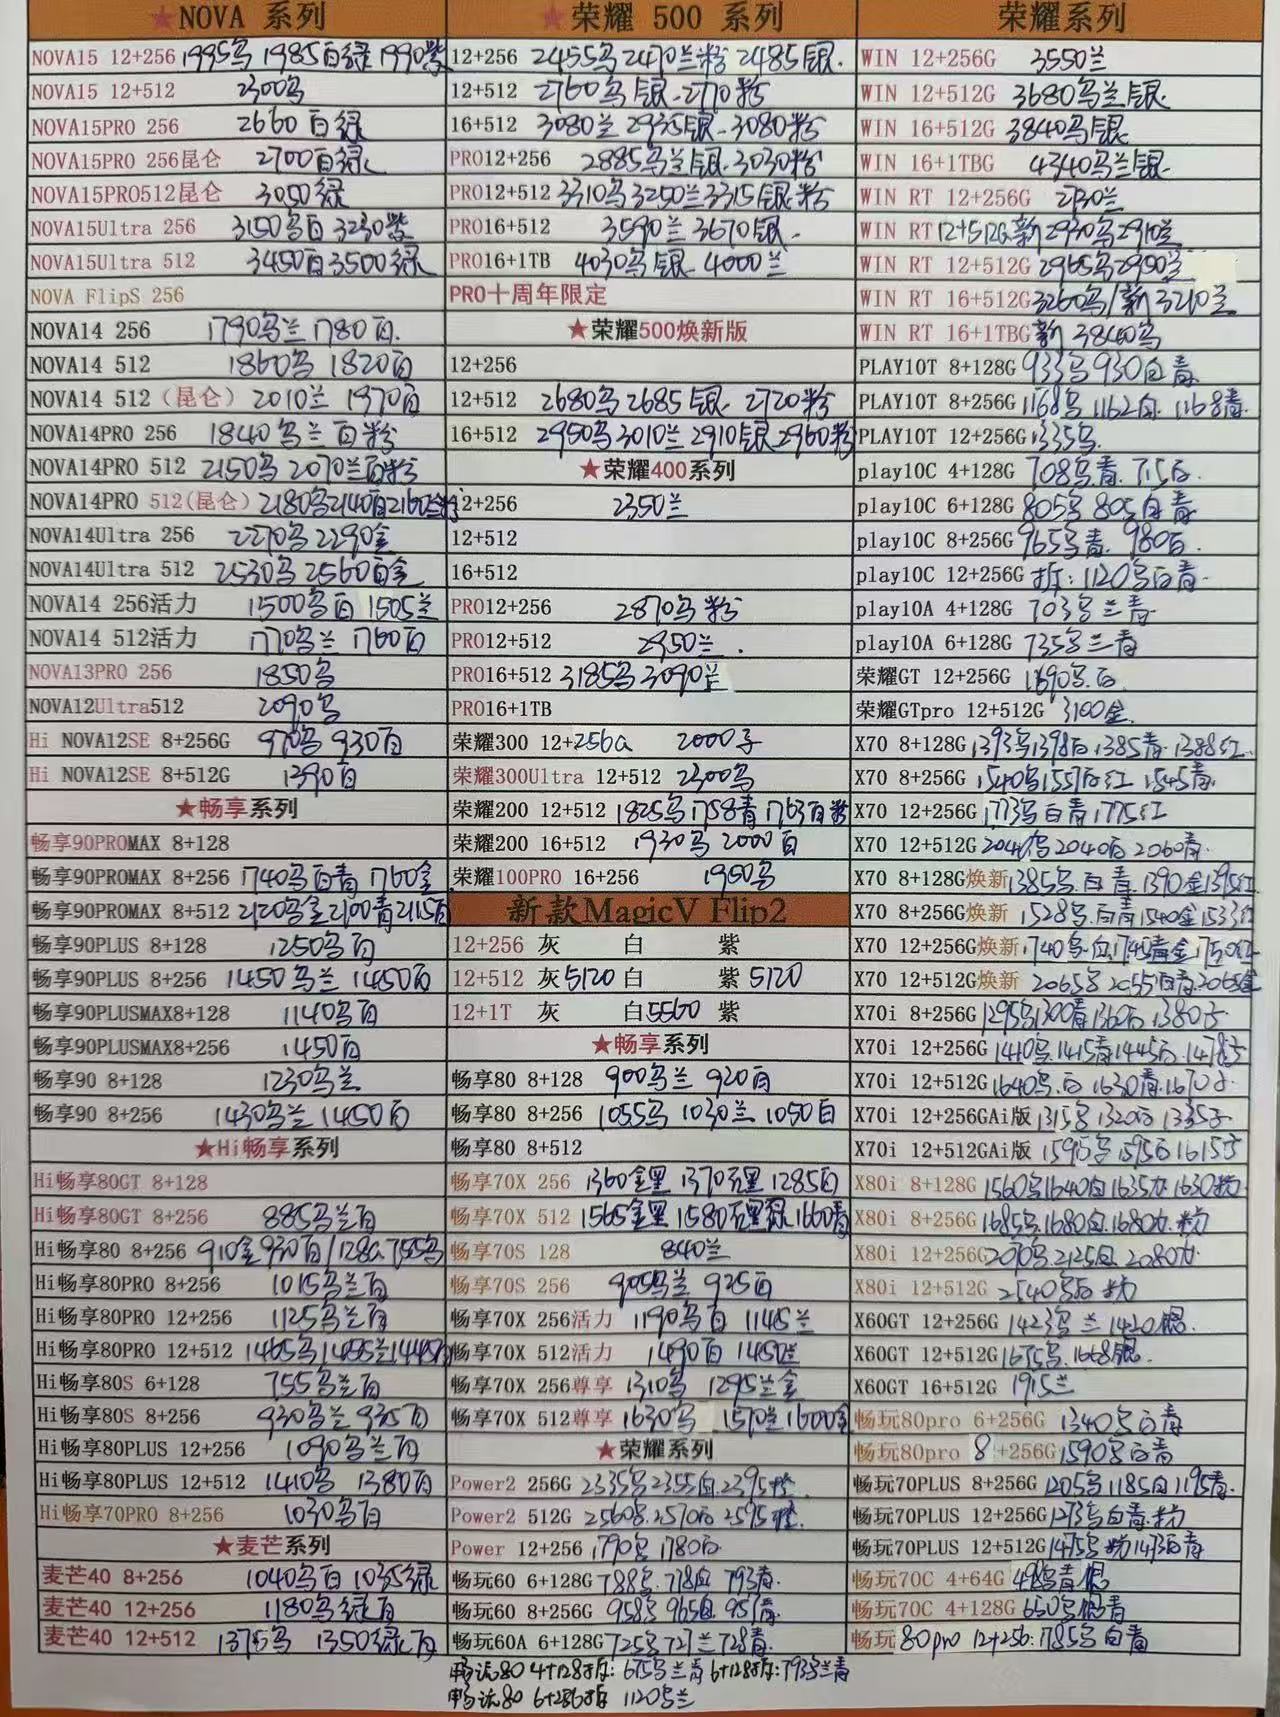 ★NOVA 系列
NOVA15 12+256 1995乌 1985白绿 1990紫
NOVA15 12+512 2300乌
NOVA15PRO 256 2660白绿
NOVA15PRO 256昆仑 2700白绿
NOVA15PRO512昆仑 3050绿
NOVA15Ultra 256 3150乌白 3230紫
NOVA15Ultra 512 3450白3500绿
NOVA FlipS 256
NOVA14 256 1790乌兰 1780白
NOVA14 512 1860乌 1820白
NOVA14 512（昆仑）2010兰 1970白
NOVA14PRO 256 1840乌兰白粉
NOVA14PRO 512 2150乌 2070兰白粉
NOVA14PRO 512(昆仑) 2180乌2140白2160兰粉
NOVA14Ultra 256 2270乌 2290金
NOVA14Ultra 512 2530乌 2560白金
NOVA14 256活力 1500乌白 1505兰
NOVA14 512活力 1770乌兰 1760白
NOVA13PRO 256 1850乌
NOVA12Ultra512 2090乌
Hi NOVA12SE 8+256G 970乌 930白
Hi NOVA12SE 8+512G 1390白
★畅享系列
畅享90PROMAX 8+128
畅享90PROMAX 8+256 1740乌白青 1760金
畅享90PROMAX 8+512 2120乌金2100青2115白
畅享90PLUS 8+128 1250乌白
畅享90PLUS 8+256 1450乌兰 1450白
畅享90PLUSMAX8+128 1140乌白
畅享90PLUSMAX8+256 1450白
畅享90 8+128 1230乌兰
畅享90 8+256 1430乌兰 1450白
★Hi畅享系列
Hi畅享80GT 8+128
Hi畅享80GT 8+256 885乌兰白
Hi畅享80 8+256 910金930白/128G 755乌
Hi畅享80PRO 8+256 1015乌兰白
Hi畅享80PRO 12+256 1125乌兰白
Hi畅享80PRO 12+512 1465乌1455兰1445白
Hi畅享80S 6+128 755乌兰白
Hi畅享80S 8+256 930乌兰 935白
Hi畅享80PLUS 12+256 1090乌兰白
Hi畅享80PLUS 12+512 1410乌 1380白
Hi畅享70PRO 8+256 1030乌白
★麦芒系列
麦芒40 8+256 1040乌白 1035绿
麦芒40 12+256 1180乌绿白
麦芒40 12+512 1375乌 1350绿白
★荣耀 500 系列
12+256 2455乌2470兰粉 2485银
12+512 2760乌银 2770粉
16+512 3080兰 2935银 3080粉
PRO12+256 2885乌兰银 3030粉
PRO12+512 3310乌3250兰3315银粉
PRO16+512 3590兰 3670银
PRO16+1TB 4030乌银 4000兰
PRO十周年限定
★荣耀500焕新版
12+256
12+512 2680乌 2685银 2720粉
16+512 2950乌3010兰 2910银2960粉
★荣耀400系列
12+256 2350兰
12+512
16+512
PRO12+256 2870乌粉
PRO12+512 2950兰
PRO16+512 3185乌 3090兰
PRO16+1TB
荣耀300 12+256G 2000
荣耀300Ultra 12+512 2300乌
荣耀200 12+512 1825乌1758青 1763白粉
荣耀200 16+512 1930乌 2000白
荣耀100PRO 16+256 1950乌
新款MagicV Flip2
12+256 灰 白 紫
12+512 灰5120 白 紫5120
12+1T 灰 白5560 紫
★畅享系列
畅享80 8+128 900乌兰 920白
畅享80 8+256 1055乌 1030兰 1050白
畅享80 8+512
畅享70X 256 1360金黑 1370亮黑 1285白
畅享70X 512 1565金黑 1580亮黑绿 1660青
畅享70S 128 840兰
畅享70S 256 905乌兰 925白
畅享70X 256活力 1190乌白 1145兰
畅享70X 512活力 1490白 1450兰
畅享70X 256尊享 1310乌 1295兰金
畅享70X 512尊享 1630乌 1570兰1600金
★荣耀系列
Power2 256G 2335乌2355白2395橙
Power2 512G 2560乌2570白 2595橙
Power 12+256 1790乌 1780白
畅玩60 6+128G 788乌 778白 793青
畅玩60 8+256G 958乌 965白 957青
畅玩60A 6+128G 725乌 727兰728青
畅玩80 4+128拆: 675乌兰青 6+128拆:793乌兰青
畅玩80 6+256拆 1120乌兰
荣耀系列
WIN 12+256G 3550兰
WIN 12+512G 3680乌兰银
WIN 16+512G 3840乌银
WIN 16+1TBG 4340乌兰银
WIN RT 12+256G 2730兰
WIN RT12+512G新2930乌2910兰
WIN RT 12+512G 2965乌2950兰
WIN RT 16+512G3260乌/新 3210兰
WIN RT 16+1TBG新 3840乌
PLAY10T 8+128G 933乌 930白青
PLAY10T 8+256G 1168乌 1162白 1168青
PLAY10T 12+256G 1335乌
play10C 4+128G 708乌青 715白
play10C 6+128G 805乌 805白青
play10C 8+256G 965乌青 980白
play10C 12+256G 拆: 1120乌白青
play10A 4+128G 703乌兰青
play10A 6+128G 735乌兰青
荣耀GT 12+256G 1890乌白
荣耀GTpro 12+512G 3100金
X70 8+128G 1393乌1398白1385青1388红
X70 8+256G 1540乌1557白红 1545青
X70 12+256G 1773乌白青1775红
X70 12+512G 2040乌2040白 2060青
X70 8+128G焕新1385乌白青 1390金1395红
X70 8+256G焕新 1528乌白青1540金1533红
X70 12+256G焕新1740乌白1745青金1750红
X70 12+512G焕新 2065乌2055白青2065金
X70i 8+256G 1295乌1300青1360白1380
X70i 12+256G 1410乌1415青1445白1478
X70i 12+512G 1640乌白 1630青1670
X70i 12+256GAi版 1315乌1320白 1335
X70i 12+512GAi版 1595乌1595白1615
X80i 8+128G 1560乌1640白1635 1630粉
X80i 8+256G 1685乌1680白1680 粉
X80i 12+256G2070乌2125白 2080
X80i 12+512G 2540乌白粉
X60GT 12+256G 1423乌兰1420银
X60GT 12+512G 1675乌1668银
X60GT 16+512G 1915兰
畅玩80pro 6+256G 1340乌白青
畅玩80pro 8+256G1590乌白青
畅玩70PLUS 8+256G 1205乌1185白1195青
畅玩70PLUS 12+256G1273乌白青粉
畅玩70PLUS 12+512G1475乌粉1473白青
畅玩70C 4+64G 498乌青银
畅玩70C 4+128G 650乌银青
畅玩80pro 12+256:1785乌白青